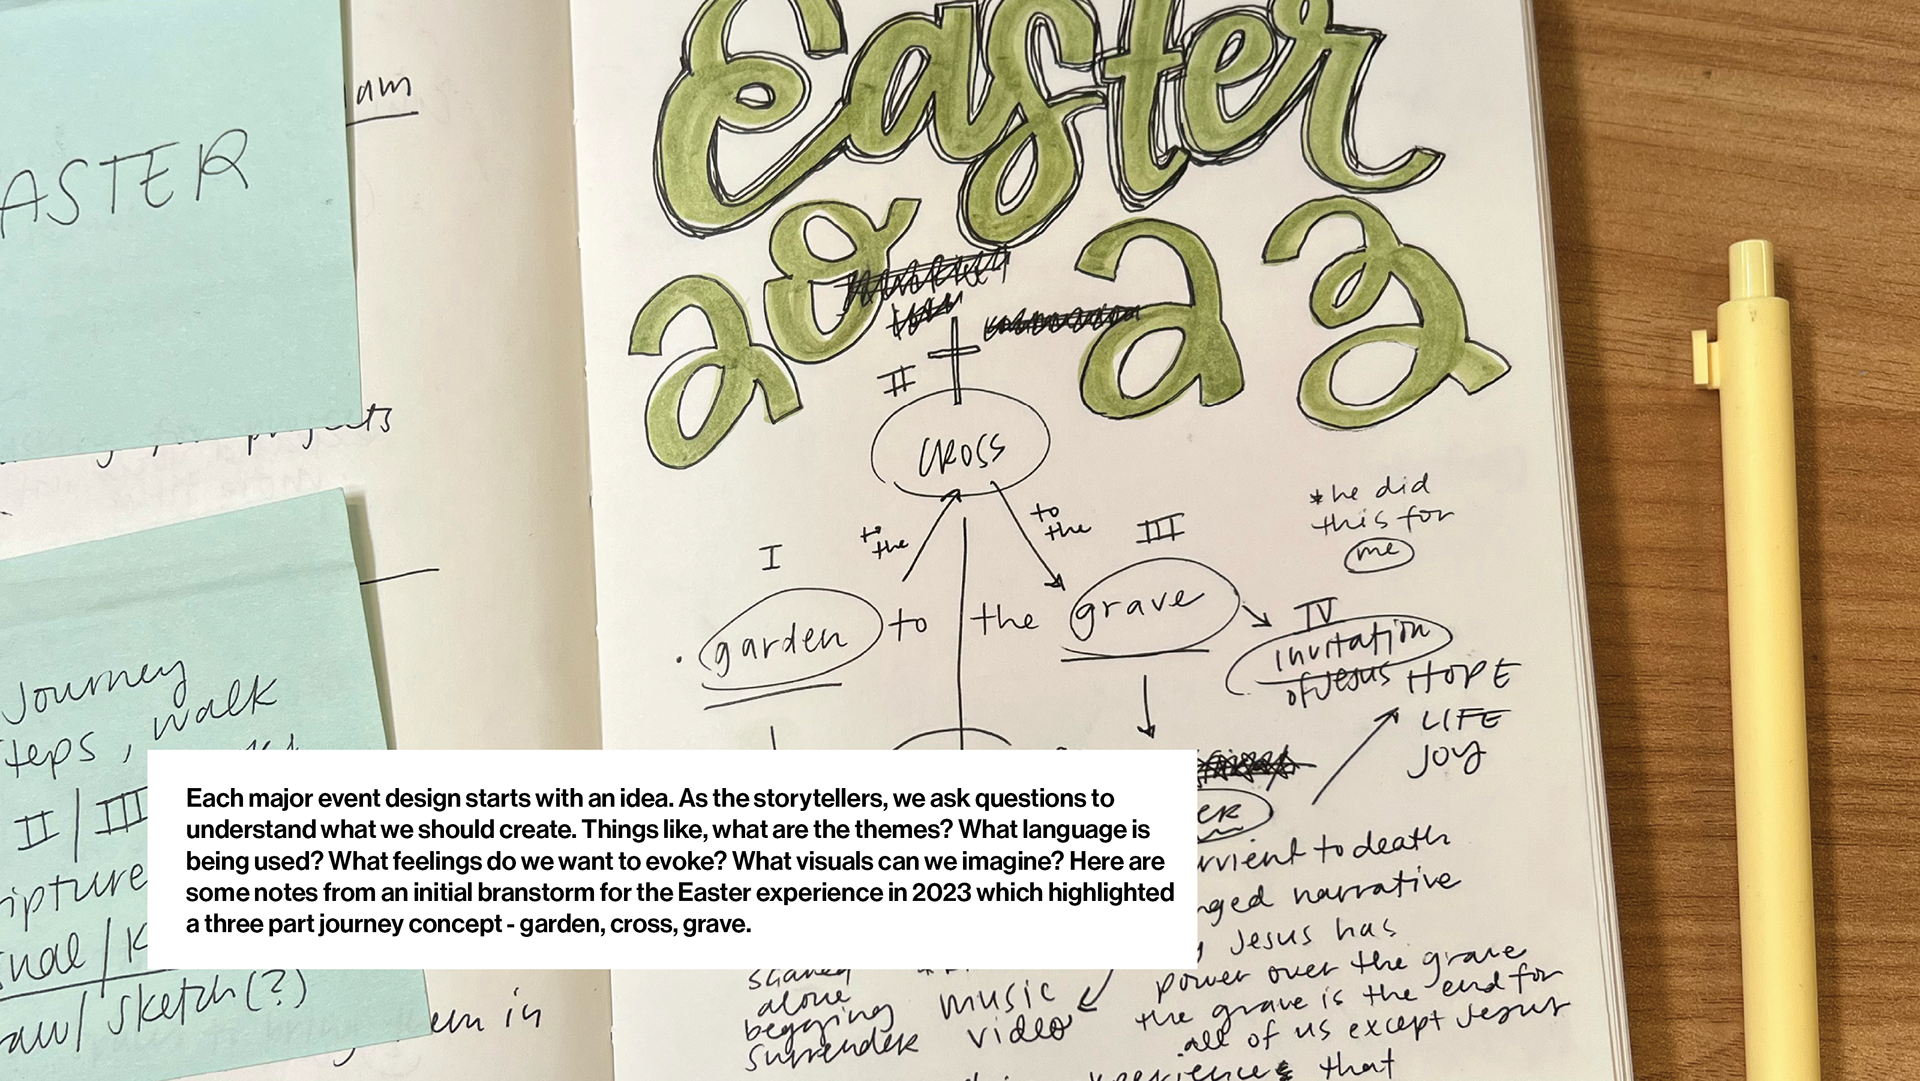 am
ASTER
projects
Journey
steps, walk
II / III
ripture
inal / K
aw / sketch (?)
em in
Easter
2023
II
CROSS
to
the
to
the
I
III
* he did
this for
me
garden to the grave
IV
invitation
of Jesus
HOPE
LIFE
JOY
Each major event design starts with an idea. As the storytellers, we ask questions to
understand what we should create. Things like, what are the themes? What language is
being used? What feelings do we want to evoke? What visuals can we imagine? Here are
some notes from an initial branstorm for the Easter experience in 2023 which highlighted
a three part journey concept - garden, cross, grave.
er
rvient to death
nged narrative
y Jesus has
power over the grave
the grave is the end for
all of us except Jesus
that
scared
alone
begging
surrender
music
video